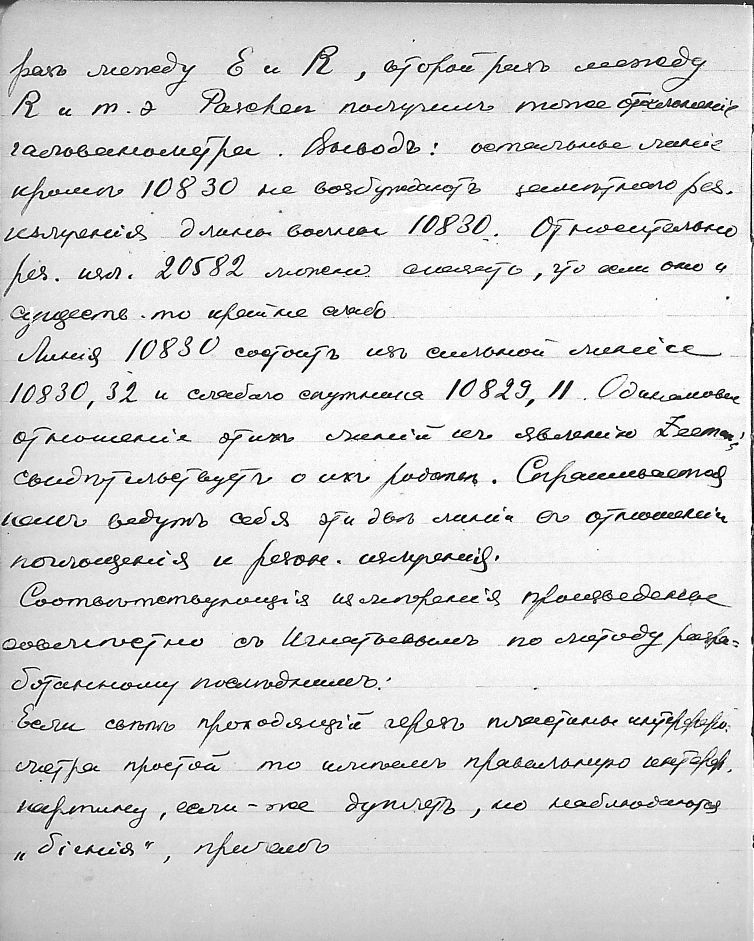 разъ между E и R, второй разъ между
R и т. д Paschen получилъ тоже отклоненiе
гальванометра. Выводъ: остальные линiи
кромѣ 10830 не возбуждаютъ замѣтнаго рез.
излученiя длины волны 10830. Относительно
рез. изл. 20582 можно сказать, что если оно и
существ. то крайне слабо
Линiя 10830 состоитъ изъ сильной линiи
10830,32 и слабаго спутника 10829,11. Одинаковое
отношенiе этихъ линiй къ явленiю Zeeman'a
свидѣтельствуетъ о ихъ родствѣ. Спрашивается
какъ ведутъ себя эти двѣ линiи въ отношенiи
поглощенiя и резон. излученiя.
Соотвѣтствующiя измѣренiя произведены
совмѣстно съ Игнатьевымъ по методу разра-
ботанному послѣднимъ:
Если свѣтъ проходящiй черезъ пластины интерферо
метра простой то имѣемъ правильную интерфер.
картину, если-же дуплетъ, но наблюдаются
„бiенiя“, причемъ